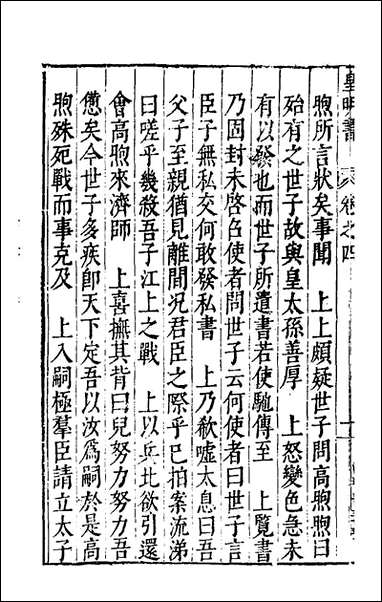 皇明書 卷之四
煦所言狀矣事聞　上上頗疑世子問高煦煦曰
殆有之世子故與皇太孫善厚　上怒變色急未
有以發也而世子所遺書若使馳傳至　上覽書
乃固封未啓名使者問世子云何使者曰世子言
臣子無私交何敢發私書　上乃欷噓太息曰吾
父子至親猶見離間况君臣之際乎已拍案流涕
曰嗟乎幾殺吾子江上之戰　上以兵北欲引還
會高煦來濟師　上喜撫其背曰兒努力努力吾
憊矣今世子多疾卽天下定吾以汝爲嗣於是高
煦殊死戰而事克及　上入嗣極羣臣請立太子